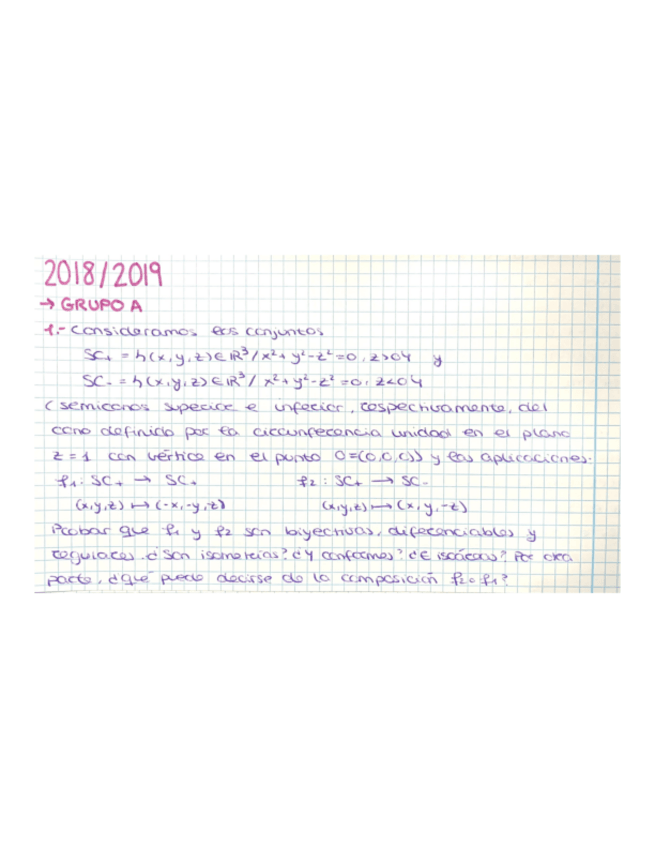 2018/2019
→ GRUPO A
1.- Consideramos los conjuntos
SC₊ = {(x,y,z) ∈ ℝ³ / x²+y²-z²=0, z>0} y
SC₋ = {(x,y,z) ∈ ℝ³ / x²+y²-z²=0, z<0}
(semiconos superior e inferior, respectivamente, del
cono definido por la circunferencia unidad en el plano
z=1 con vértice en el punto O=(0,0,0)) y las aplicaciones:
f₁: SC₊ → SC₊ f₂: SC₊ → SC₋
(x,y,z) ↦ (-x,-y,z) (x,y,z) ↦ (x,y,-z)
Probar que f₁ y f₂ son biyectivas, diferenciables y
regulares. ¿Son isometrías? ¿Y conformes? ¿E isoáreas? Por otra
parte, ¿qué puede decirse de la composición f₂∘f₁?